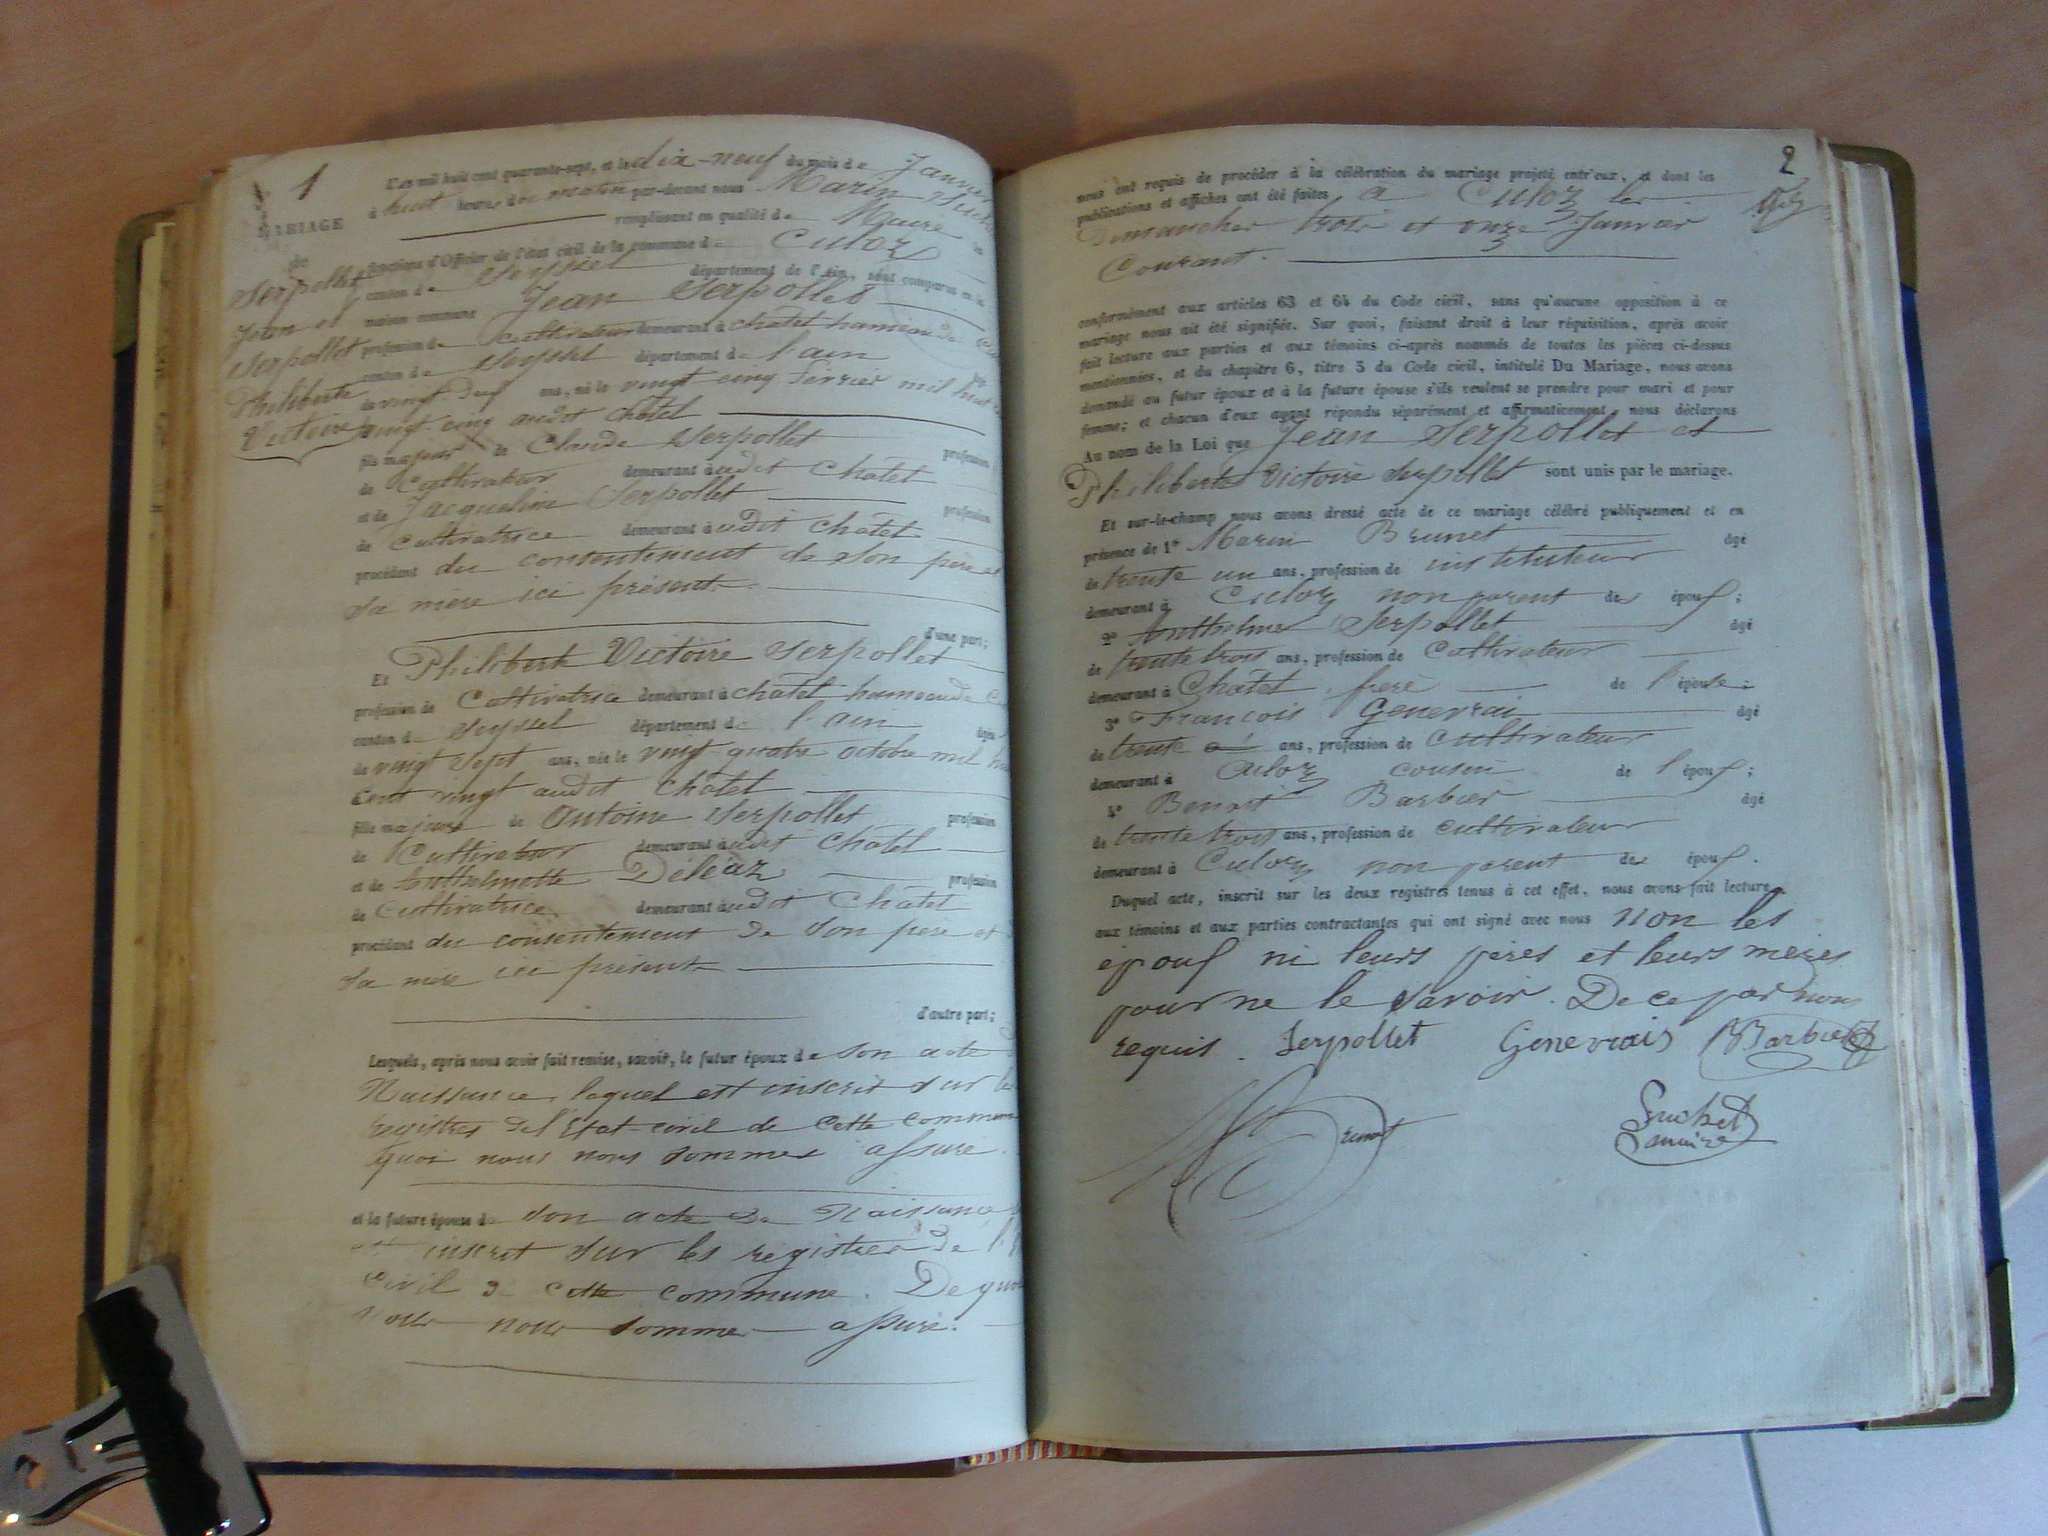 1
MARIAGE
de
Serpollet
Jean et
Serpollet
Philiberte
Victoire
L'an mil huit cent quarante-sept, et le dix-neuf du mois de Janvier
à huit heures du matin par-devant nous Marin
remplissant en qualité de Maire
fonctions d'Officier de l'état civil de la commune de Culoz
canton de Seyssel département de l'Ain, sont comparus en la
maison commune Jean Serpollet
profession de cultivateur demeurant à chatel hameau de
canton de Seyssel département de l'ain
de vingt deux ans, né le vingt cinq février mil huit
vingt cinq audit Chatel
fils majeur de Claude Serpollet profession
de Cultivateur demeurant audit Chatel
et de Jacqueline Serpollet profession
de Cultivatrice demeurant audit Chatel
procédant du consentement de son père et
sa mère ici présent
d'une part;
Et Philiberte Victoire Serpollet
profession de Cultivatrice demeurant à chatel hameau de
canton de Seyssel département de l'ain âgée
de vingt sept ans, née le vingt quatre octobre mil
Cent vingt audit Chatel
fille majeure de Antoine Serpollet profession
de Cultivateur demeurant audit Chatel
et de Anthelmette Déléaz profession
de Cultivatrice demeurant audit Chatel
procédant du consentement de son père et
sa mère ici présent
d'autre part;
Lesquels, après nous avoir fait remise, savoir, le futur époux de son acte
Naissance, lequel est inscrit sur les
registres de l'Etat-civil de cette commune
quoi nous nous sommes assuré.
et la future épouse de son acte de Naissance
est inscrit sur les registres de
Civil de cette commune. De quoi
nous nous sommes assuré.
2
nous ont requis de procéder à la célébration du mariage projeté entr'eux, et dont les
publications et affiches ont été faites à Culoz les
Dimanches trois et onze Janvier
Courant.
conformément aux articles 63 et 64 du Code civil, sans qu'aucune opposition à ce
mariage nous ait été signifiée. Sur quoi, faisant droit à leur réquisition, après avoir
fait lecture aux parties et aux témoins ci-après nommés de toutes les pièces ci-dessus
mentionnées, et du chapitre 6, titre 5 du Code civil, intitulé Du Mariage, nous avons
demandé au futur époux et à la future épouse s'ils veulent se prendre pour mari et pour
femme; et chacun d'eux ayant répondu séparément et affirmativement, nous déclarons
Au nom de la Loi que Jean Serpollet et
Philiberte Victoire Serpollet sont unis par le mariage.
Et sur-le-champ nous avons dressé acte de ce mariage célébré publiquement et en
présence de 1° Marin Brunet âgé
de trente un ans, profession de instituteur
demeurant à Culoz non parent des épouf;
2° Anthelme Serpollet âgé
de trente trois ans, profession de Cultivateur
demeurant à Chatel frère de l'épouse;
3° François Genevrai âgé
de trente ans, profession de Cultivateur
demeurant à Culoz cousin de l'épouf;
4° Benoit Barbier âgé
de trente trois ans, profession de Cultivateur
demeurant à Culoz non parent des épouf.
Duquel acte, inscrit sur les deux registres tenus à cet effet, nous avons fait lecture
aux témoins et aux parties contractantes qui ont signé avec nous non les
épouf ni leurs pères et leurs mères
pour ne le savoir. De ce par nous
requis. Serpollet Genevrais Barbier
Brunet
Suchet
maire